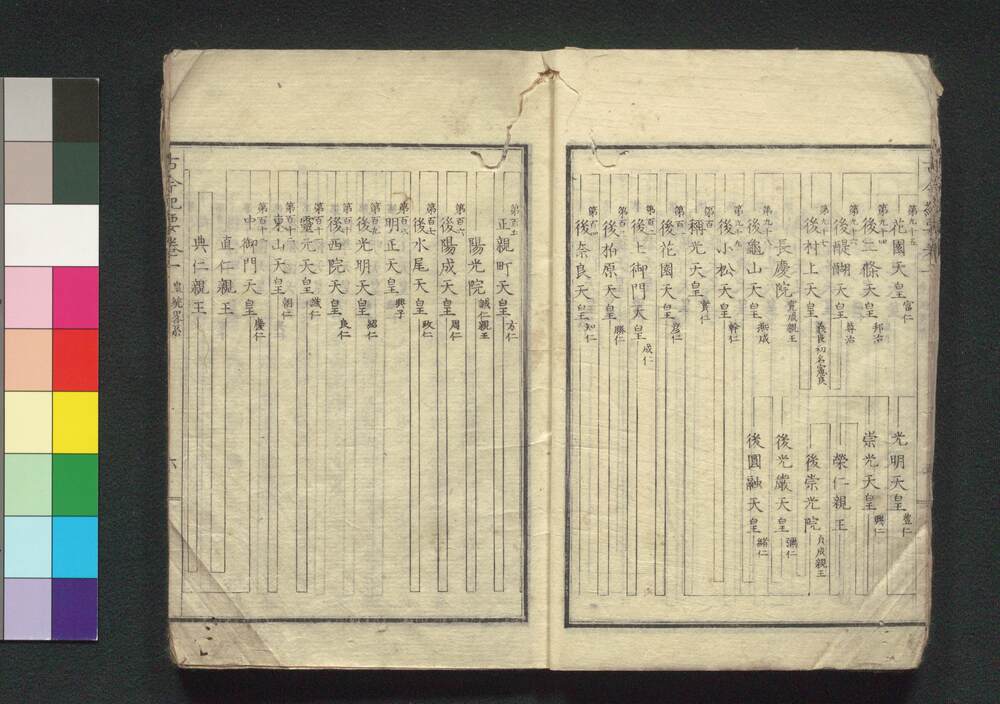 第九十五
花園天皇 富仁
後二條天皇 邦治
後醍醐天皇 尊治
第九十七
後村上天皇 義良初名憲良
長慶院 寛成親王
第九十八
後龜山天皇 熙成
第九十九
後小松天皇 幹仁
第百
稱光天皇 實仁
第百一
後花園天皇 彦仁
第百二
後土御門天皇 成仁
後柏原天皇 勝仁
後奈良天皇 知仁
光明天皇 豐仁
崇光天皇 興仁
榮仁親王
後崇光院 貞成親王
後光嚴天皇 彌仁
後圓融天皇 緒仁
正親町天皇 方仁
陽光院 誠仁親王
第百六
後陽成天皇 周仁
第百七
後水尾天皇 政仁
第百八
明正天皇 興子
第百九
後光明天皇 紹仁
第百十
後西院天皇 良仁
靈元天皇 識仁
東山天皇 朝仁
中御門天皇 慶仁
直仁親王
典仁親王
古今紀要卷一 皇統畧系 六